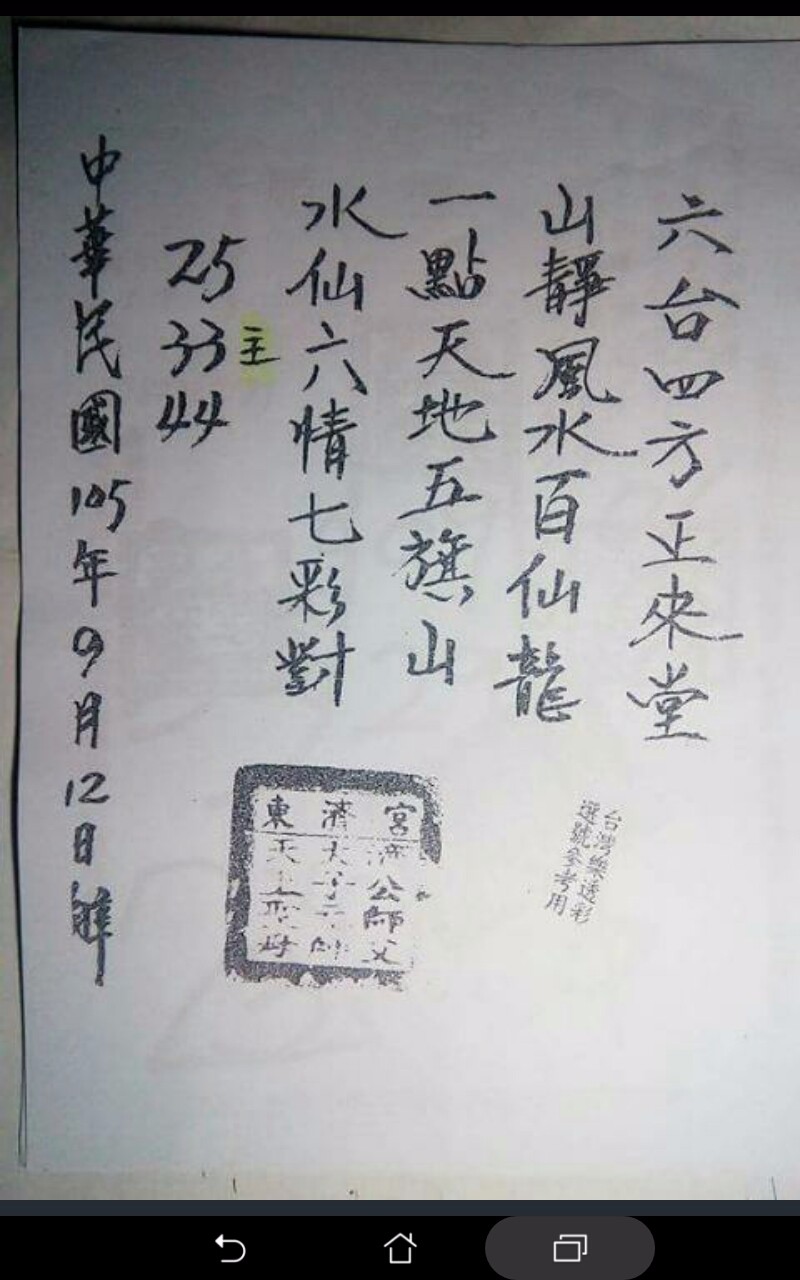 六台四方正來堂
山靜風水百仙龍
一點天地五旗山
水仙六情七彩對
25
33 主
44
中華民國105年9月12日
台灣樂透彩
選號參考用
宮濟東
濟公師父
天上聖母